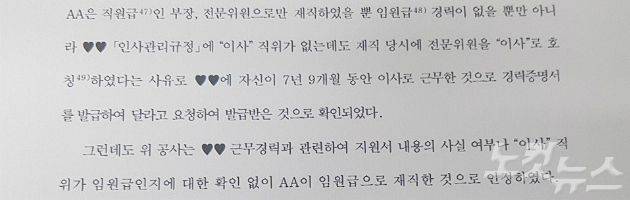 AA은 직원급47)인 부장, 전문위원으로만 재직하였을 뿐 임원급48) 경력이 없을 뿐만 아니
라 ♥♥ 「인사관리규정」에 “이사” 직위가 없는데도 재직 당시에 전문위원을 “이사”로 호
칭49)하였다는 사유로 ♥♥에 자신이 7년 9개월 동안 이사로 근무한 것으로 경력증명서
를 발급하여 달라고 요청하여 발급받은 것으로 확인되었다.
그런데도 위 공사는 ♥♥ 근무경력과 관련하여 지원서 내용의 사실 여부나 “이사” 직
위가 임원급인지에 대한 확인 없이 AA이 임원급으로 재직한 것으로 인정하였다.
노컷뉴스